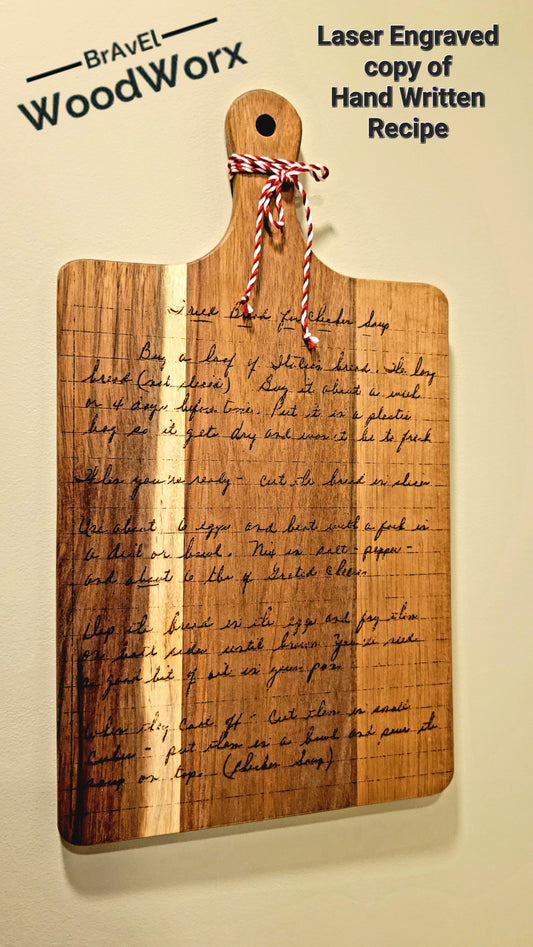 BrAvEl
WoodWorx
Laser Engraved
copy of
Hand Written
Recipe
Fried Bread for Chicken Soup
Buy a loaf of Italian bread. The long
bread (not sliced) Buy it about a week
or 4 days before time. Put it in a plastic
bag so it gets dry and won't be to fresh
When you're ready - cut the bread in slices
Use about 6 eggs and beat with a fork in
a dish or bowl. Mix in salt - pepper -
and about 6 tbs of Grated Cheese.
Dip the bread in the eggs and fry them
on both sides until brown. You'll need
a good bit of oil in your pan.
When they cool off - Cut them in small
Cubes - put them in a bowl and pour the
soup on top. (Chicken Soup)